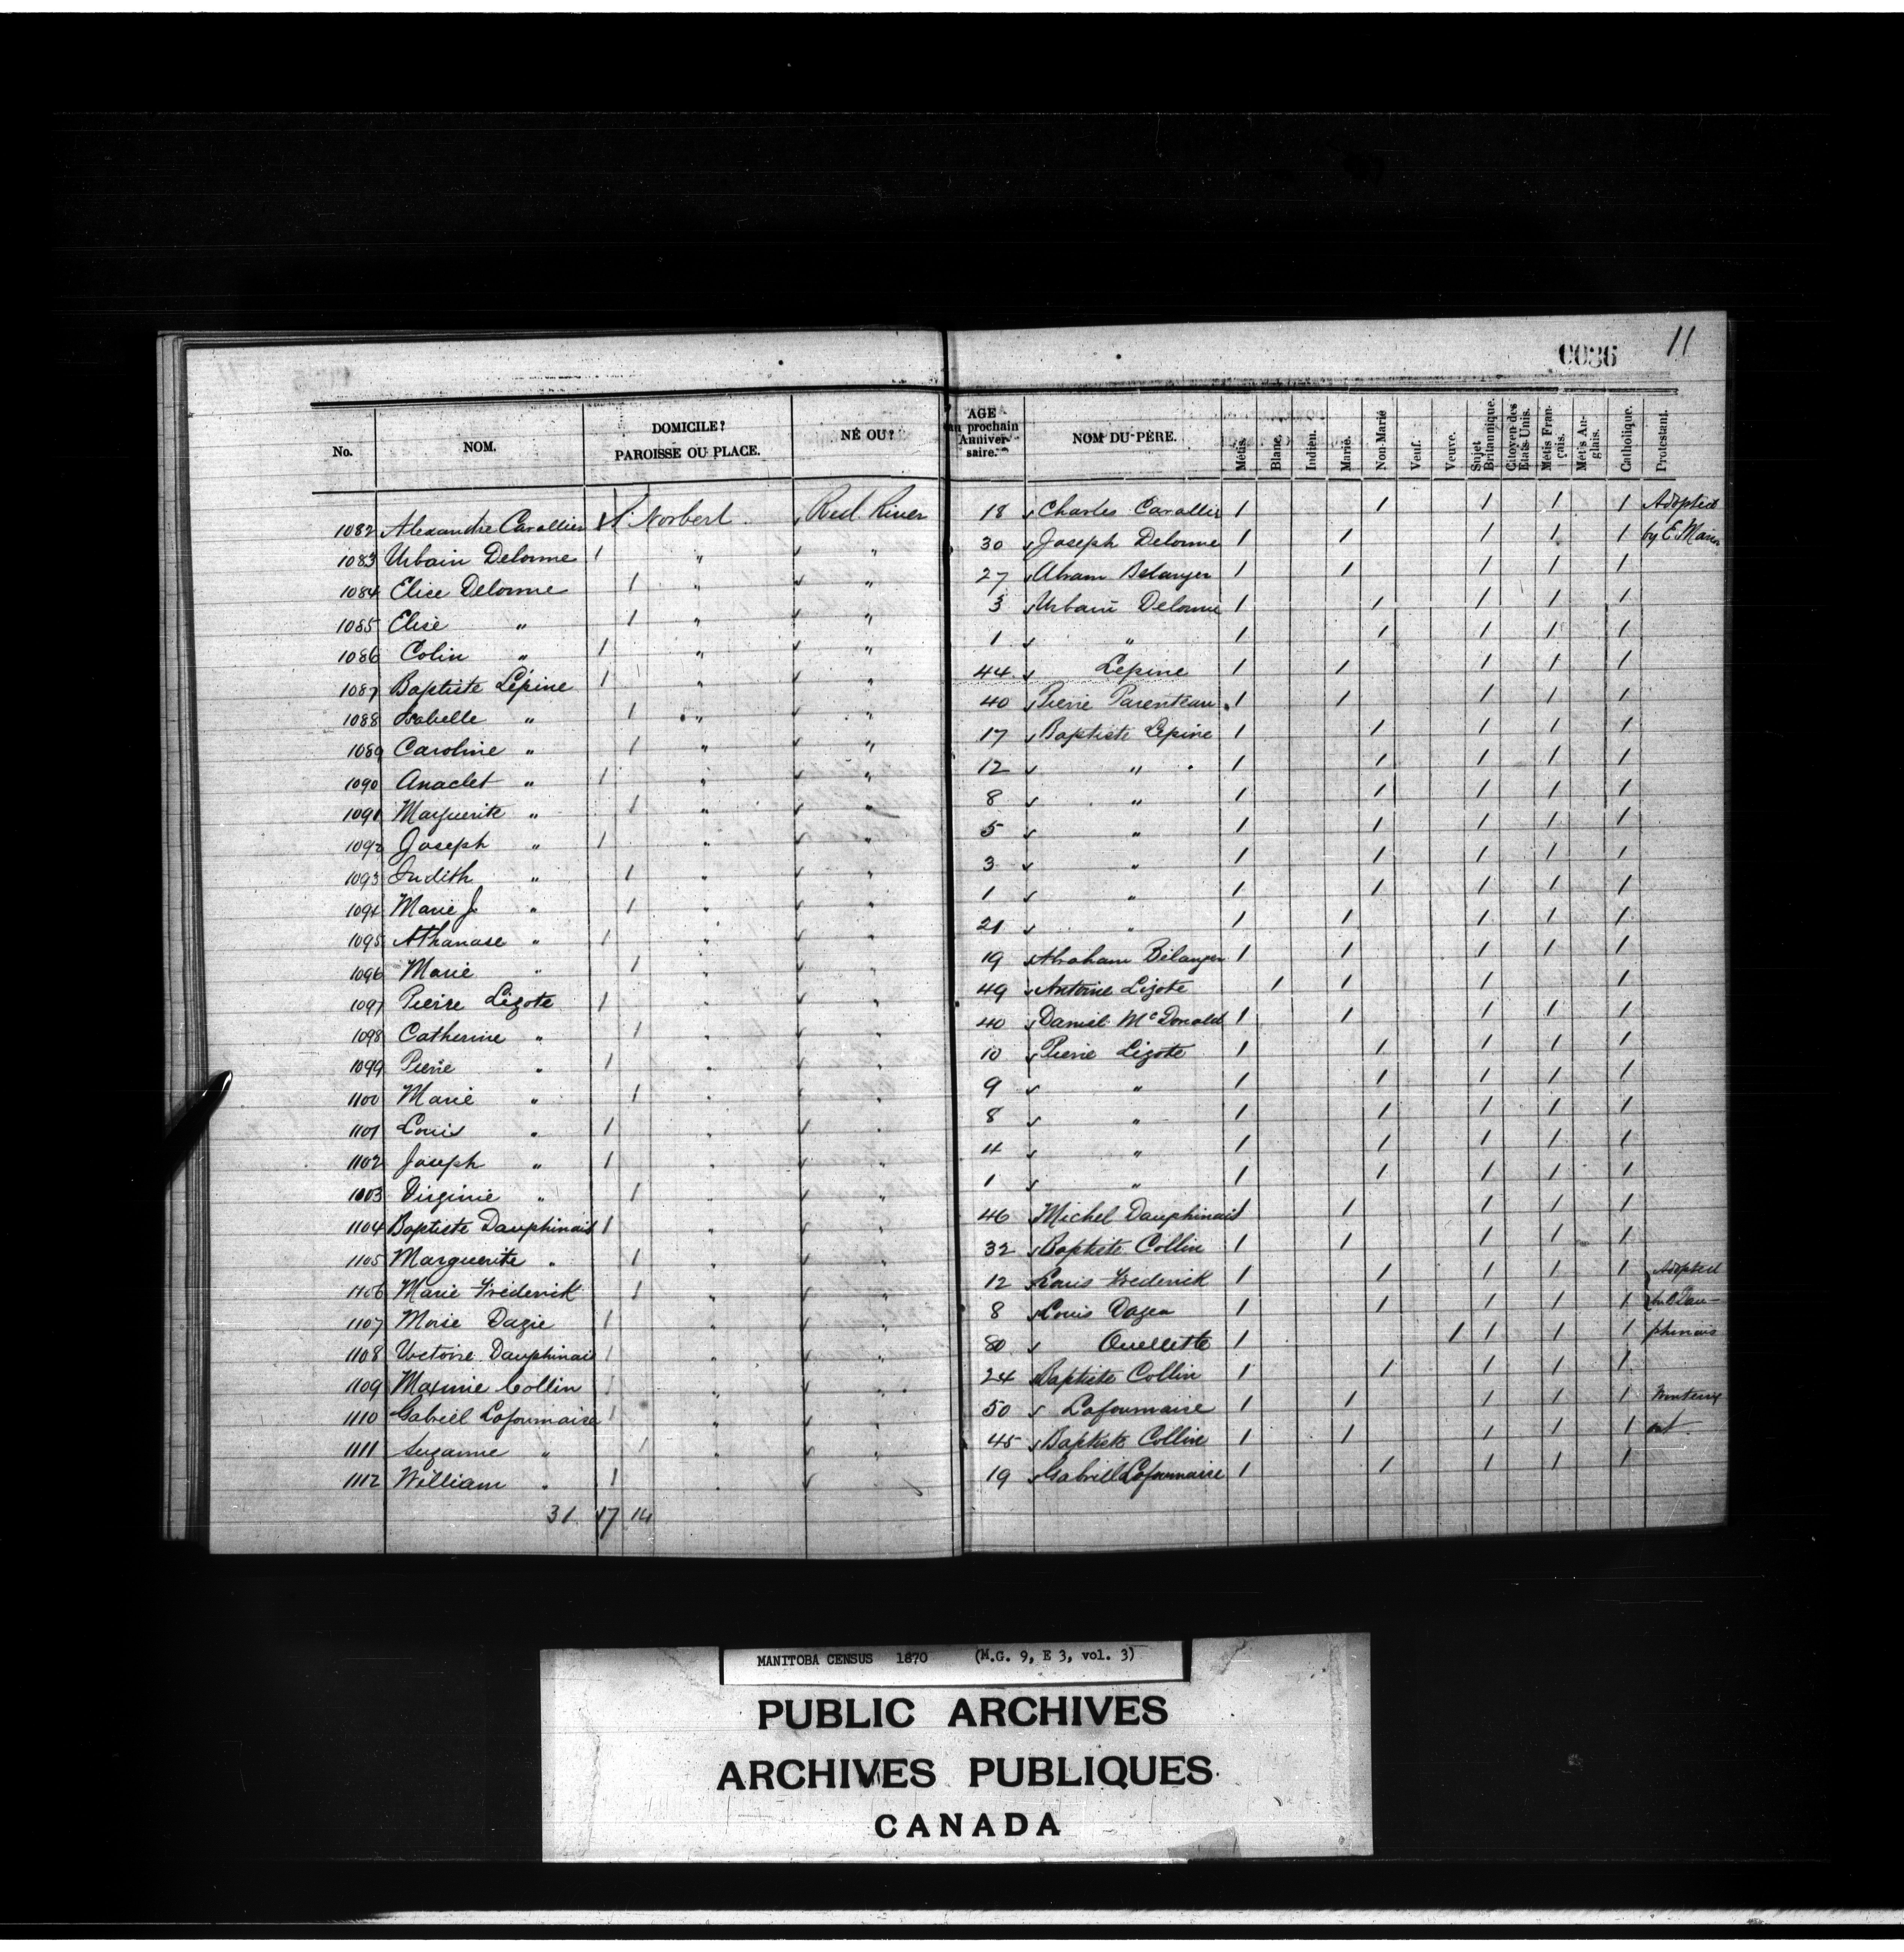 11
0036
No. NOM. DOMICILE? PAROISSE OU PLACE. NÉ OU? AGE au prochain Anniversaire. NOM DU PÈRE. Métis. Blanc. Indien. Marié. Non-Marié Veuf. Veuve. Sujet Britannique. Citoyen des Etats-Unis. Métis Français. Métis Anglais. Catholique. Protestant.
1082 Alexandre Cavallier 1 St Norbert Red River 18 Charles Cavallier 1 1 1 1 1 Adopted
1083 Urbain Delorme 1 " " 30 Joseph Delorme 1 1 1 1 1 by E. Marion
1084 Elise Delorme 1 " " 27 Abram Belanger 1 1 1 1 1
1085 Elise " 1 " " 3 Urbain Delorme 1 1 1 1 1
1086 Colin " 1 " " 1 " 1 1 1 1 1
1087 Baptiste Lépine 1 " " 44 Lepine 1 1 1 1 1
1088 Isabelle " 1 " " 40 Pierre Parenteau 1 1 1 1 1
1089 Caroline " 1 " " 17 Baptiste Lepine 1 1 1 1 1
1090 Anaclet " 1 " " 12 " 1 1 1 1 1
1091 Marguerite " 1 " " 8 " 1 1 1 1 1
1092 Joseph " 1 " " 5 " 1 1 1 1 1
1093 Judith " 1 " " 3 " 1 1 1 1 1
1094 Marie J. " 1 " " 1 " 1 1 1 1 1
1095 Athanase " 1 " " 21 " 1 1 1 1 1
1096 Marie " 1 " " 19 Abraham Bélanger 1 1 1 1 1
1097 Pierre Lizote 1 " " 49 Antoine Lizote 1 1 1 1
1098 Catherine " 1 " " 40 Daniel McDonald 1 1 1 1 1
1099 Pierre " 1 " " 10 Pierre Lizote 1 1 1 1 1
1100 Marie " 1 " " 9 " 1 1 1 1 1
1101 Louis " 1 " " 8 " 1 1 1 1 1
1102 Joseph " 1 " " 4 " 1 1 1 1 1
1103 Virginie " 1 " " 1 " 1 1 1 1 1
1104 Baptiste Dauphinais 1 " " 46 Michel Dauphinais 1 1 1 1 1
1105 Marguerite " 1 " " 32 Baptiste Collin 1 1 1 1 1
1106 Marie Frederick 1 " " 12 Louis Frederick 1 1 1 1 1 Adopted
1107 Moise Dazie 1 " " 8 Louis Dazea 1 1 1 1 1
1108 Victoire Dauphinais 1 " " 80 Ouellette 1 1 1 1 1 phinais
1109 Maxime Collin 1 " " 24 Baptiste Collin 1 1 1 1 1
1110 Gabriel Lafournaise 1 " " 50 Lafournaise 1 1 1 1 1
1111 Suzanne " 1 " " 45 Baptiste Collin 1 1 1 1 1
1112 William " 1 " 19 Gabriel Lafournaise 1 1 1 1 1
31 17 14
MANITOBA CENSUS 1870 (M.G. 9, E 3, vol. 3)
PUBLIC ARCHIVES
ARCHIVES PUBLIQUES
CANADA